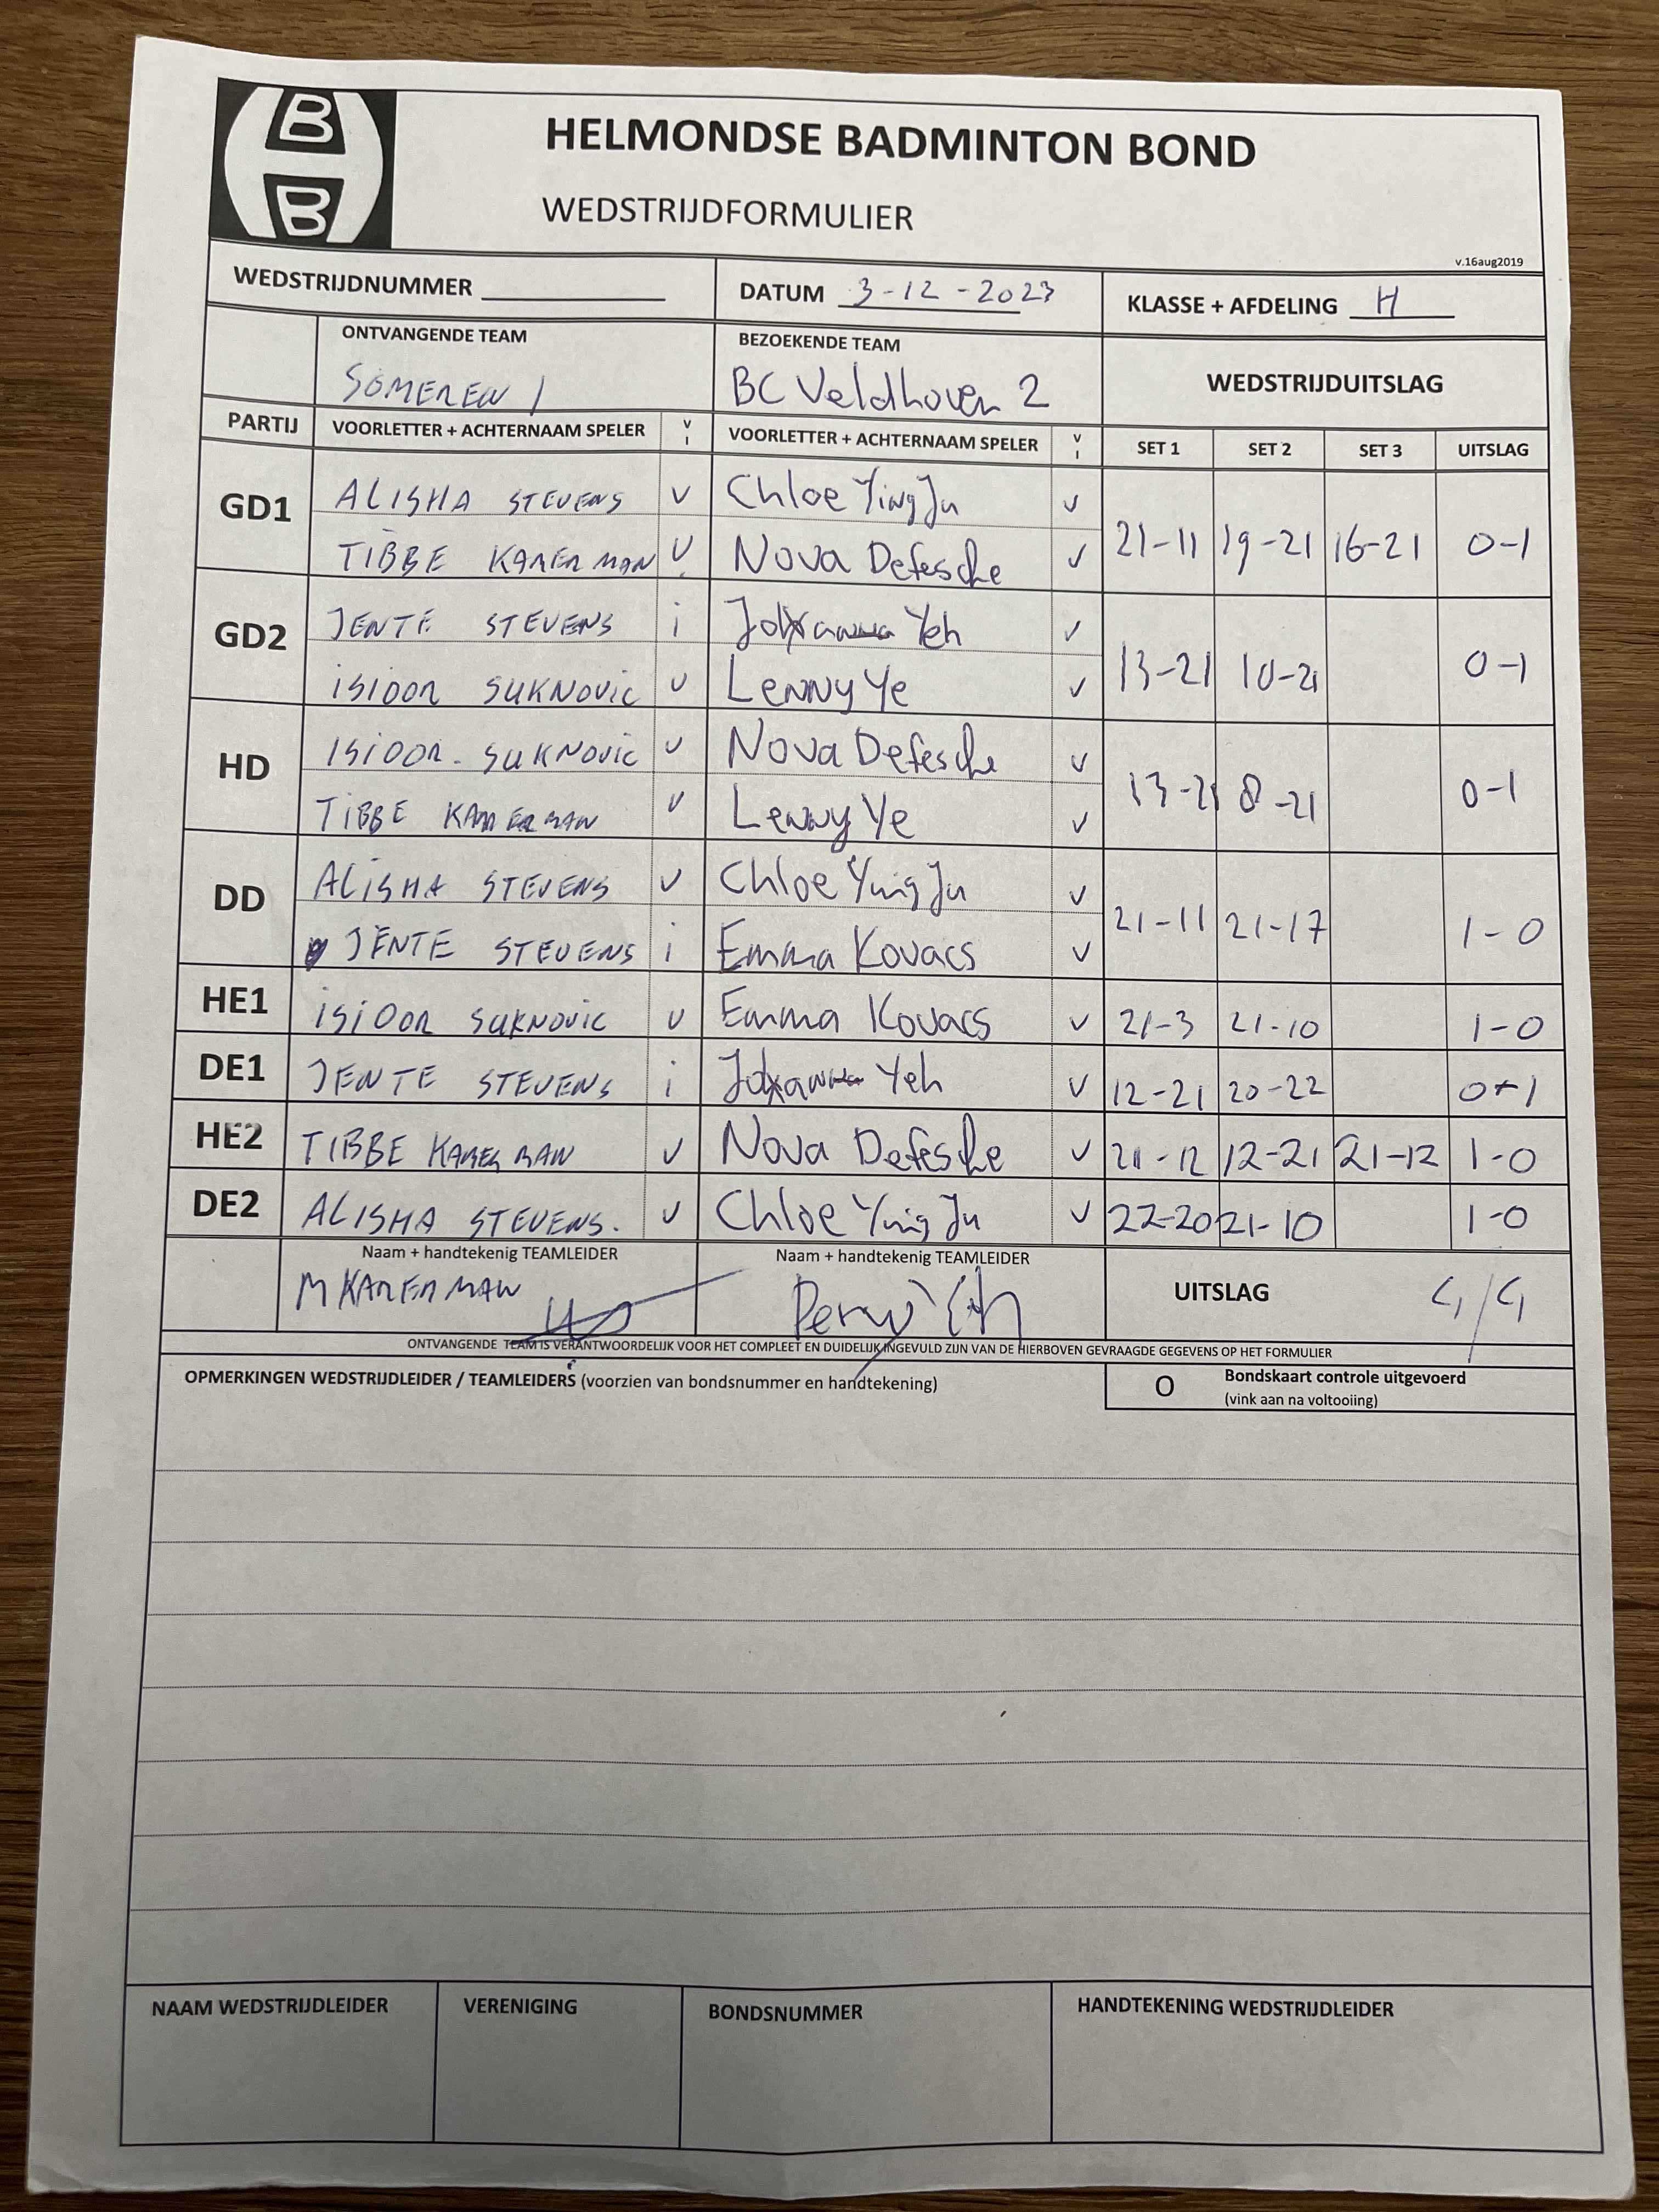 B
B
HELMONDSE BADMINTON BOND
WEDSTRIJDFORMULIER
v.16aug2019
WEDSTRIJDNUMMER DATUM 3-12-2023 KLASSE + AFDELING H
ONTVANGENDE TEAM BEZOEKENDE TEAM WEDSTRIJDUITSLAG
SOMEREN 1 BC Veldhoven 2
PARTIJ VOORLETTER + ACHTERNAAM SPELER V I VOORLETTER + ACHTERNAAM SPELER V I SET 1 SET 2 SET 3 UITSLAG
GD1 ALISHA STEVENS V Chloe Ying Ju V 21-11 19-21 16-21 0-1
TIBBE KAMERMAN V Nova Defesche V
GD2 JENTE STEVENS i Yeh V 13-21 10-21 0-1
ISIDOOR SUKNOVIC V Lenny Ye V
HD ISIDOOR SUKNOVIC V Nova Defesche V 13-21 8-21 0-1
TIBBE KAMERMAN V Lenny Ye V
DD ALISHA STEVENS V Chloe Ying Ju V 21-11 21-17 1-0
JENTE STEVENS i Emma Kovacs V
HE1 ISIDOOR SUKNOVIC V Emma Kovacs V 21-3 21-10 1-0
DE1 JENTE STEVENS i Yeh V 12-21 20-22 0-1
HE2 TIBBE KAMERMAN V Nova Defesche V 21-12 12-21 21-12 1-0
DE2 ALISHA STEVENS. V Chloe Ying Ju V 22-20 21-10 1-0
Naam + handtekenig TEAMLEIDER Naam + handtekenig TEAMLEIDER
M KAMERMAN UITSLAG 4/4
ONTVANGENDE TEAM IS VERANTWOORDELIJK VOOR HET COMPLEET EN DUIDELIJK INGEVULD ZIJN VAN DE HIERBOVEN GEVRAAGDE GEGEVENS OP HET FORMULIER
OPMERKINGEN WEDSTRIJDLEIDER / TEAMLEIDERS (voorzien van bondsnummer en handtekening) O Bondskaart controle uitgevoerd
(vink aan na voltooiing)
NAAM WEDSTRIJDLEIDER VERENIGING BONDSNUMMER HANDTEKENING WEDSTRIJDLEIDER